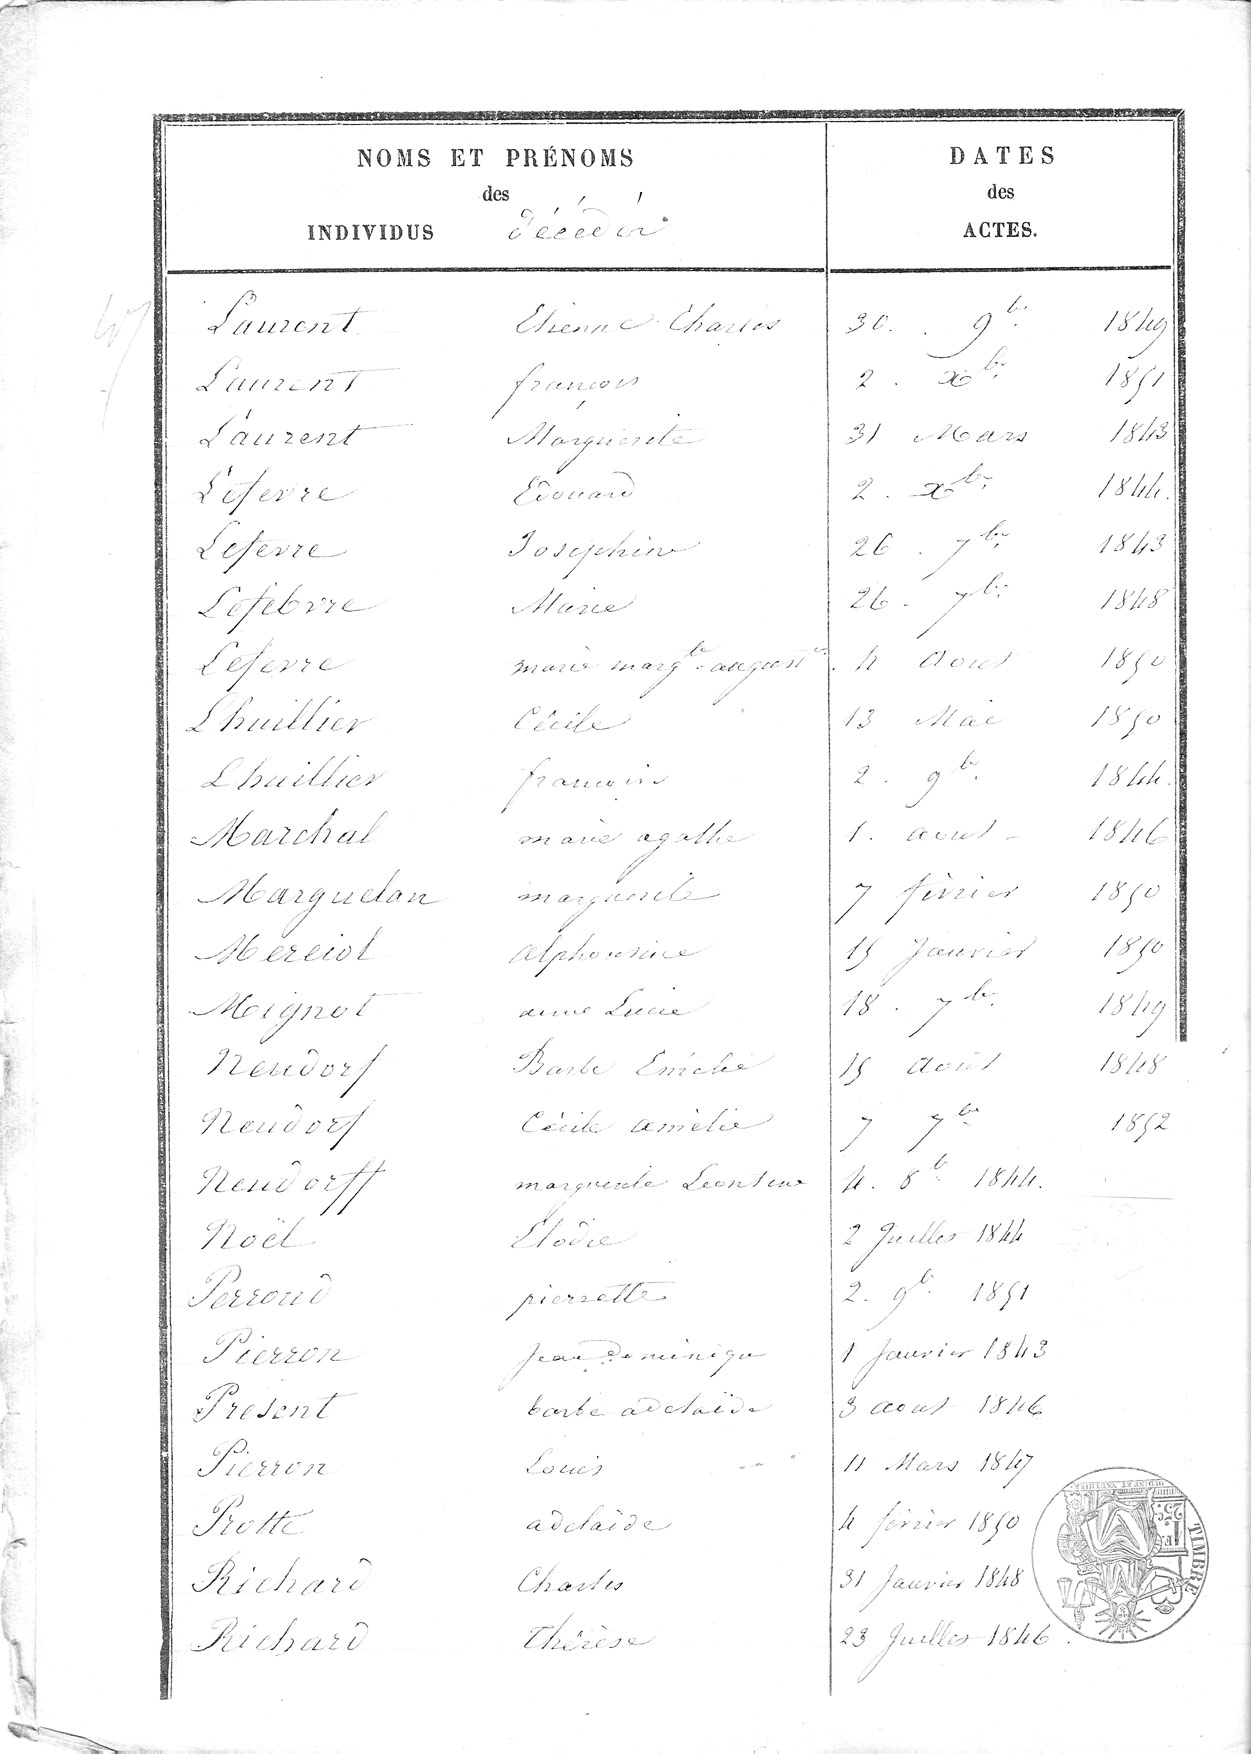 NOMS ET PRÉNOMS
des
INDIVIDUS décédés
DATES
des
ACTES.
Laurent Etienne Charles 30. 9bre 1849
Laurent françois 2. xbre 1851
Laurent Marguerite 31 Mars 1843
Lefevre Edouard 2. xbre 1844.
Lefevre Josephine 26. 7bre 1843
Lefebvre Marie 26. 7bre 1848
Lefevre marie margte august 4 aout 1850
Lhuillier Cécile 13 Mai 1850
Lhuillier françois 2. 9bre 1844.
Marchal marie agathe 1. aout 1846
Marguelon marguerite 7 février 1850
Merciol alphonsine 15 Janvier 1850
Mignot anne Lucie 18. 7bre 1849
Neudorf Barbe Emélie 15 aout 1848
Neudorf Cécile amélie 7 7bre 1852
Neudorff marguerite Leontine 4. 8bre 1844.
Noël Elodie 2 Juillet 1844
Perroud pierrette 2. 9bre 1851
Pierron Jean Dominique 1 Janvier 1843
Présent barbe adelaïde 3 aout 1846
Pierron Louis 11 Mars 1847
Protte adelaïde 4 février 1850
Richard Charles 31 Janvier 1848
Richard Thérèse 23 Juillet 1846.
TIMBRE
1 F.
25c.